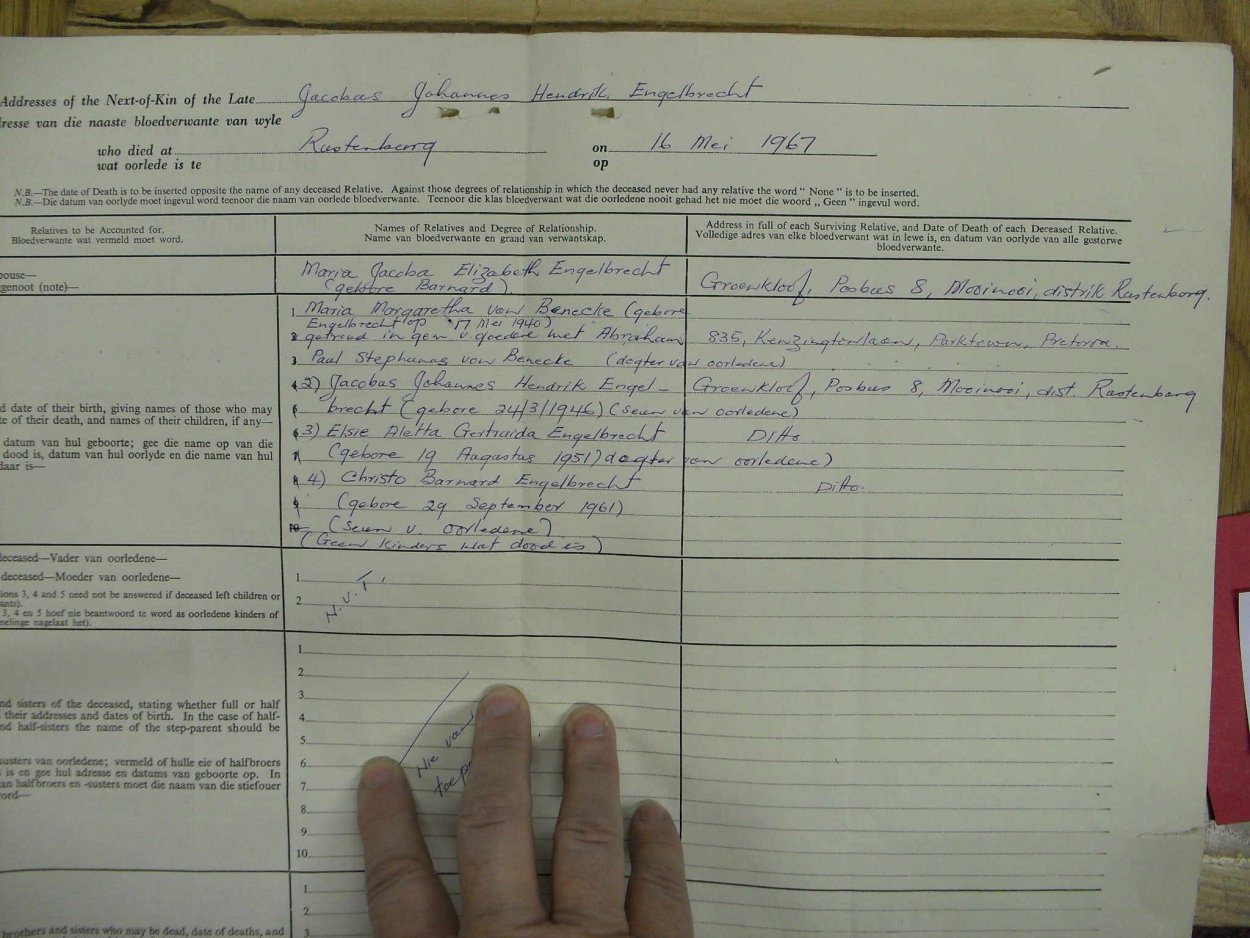 Addresses of the Next-of-Kin of the Late Jacobus Johannes Hendrik Engelbrecht
resse van die naaste bloedverwante van wyle
who died at Rustenburg on 16 Mei 1967
wat oorlede is te op
N.B.—The date of Death is to be inserted opposite the name of any deceased Relative. Against those degrees of relationship in which the deceased never had any relative the word "None" is to be inserted.
N.B.—Die datum van oorlyde moet ingevul word teenoor die naam van oorlede bloedverwante. Teenoor die klas bloedverwant wat die oorledene nooit gehad het nie moet die woord „Geen" ingevul word.
Relatives to be Accounted for.
Bloedverwante wat vermeld moet word.
Names of Relatives and Degree of Relationship.
Name van bloedverwante en graad van verwantskap.
Address in full of each Surviving Relative, and Date of Death of each Deceased Relative.
Volledige adres van elke bloedverwant wat in lewe is, en datum van oorlyde van alle gestorwe
bloedverwante.
pouse—
genoot (note)—
Maria Jacoba Elizabeth Engelbrecht
(gebore Barnard).
Groenkloof, Posbus 8, Mooinooi, distrik Rustenburg.
1 Maria Margaretha von Benecke (gebore
Engelbrecht op 17 Mei 1940)
2 getroud in gem. v. goedere met Abraham 835, Kenzingtonlaan, Parktown, Pretoria.
3 Paul Stephanus von Benecke (dogter van oorledene)
4 2) Jacobus Johannes Hendrik Engel- Groenkloof, Posbus 8, Mooinooi, dist. Rustenburg
5 brecht (gebore 24/3/1946) (seun van oorledene)
6 3) Elsie Aletta Gertruida Engelbrecht Ditto.
7 (gebore 19 Augustus 1951) dogter van oorledene)
8 4) Christo Barnard Engelbrecht Ditto.
9 (gebore 29 September 1961)
10 (seun v. oorledene)
(Geen kinders wat dood is)
d date of their birth, giving names of those who may
e of their death, and names of their children, if any—
datum van hul geboorte; gee die name op van die
dood is, datum van hul oorlyde en die name van hul
daar is—
deceased—Vader van oorledene—
deceased—Moeder van oorledene—
ions 3, 4 and 5 need not be answered if deceased left children or
ants).
3, 4 en 5 hoef nie beantwoord te word as oorledene kinders of
melinge nagelaat het).
1
2
N.V.T.
1
2
3
4
5
6
7
8
9
10
Nie van
toep
nd sisters of the deceased, stating whether full or half
their addresses and dates of birth. In the case of half-
nd half-sisters the name of the step-parent should be
susters van oorledene; vermeld of hulle eie of halfbroers
is en gee hul adresse en datums van geboorte op. In
an halfbroers en -susters moet die naam van die stiefouer
ord—
1
2
3
brothers and sisters who may be dead, date of deaths, and